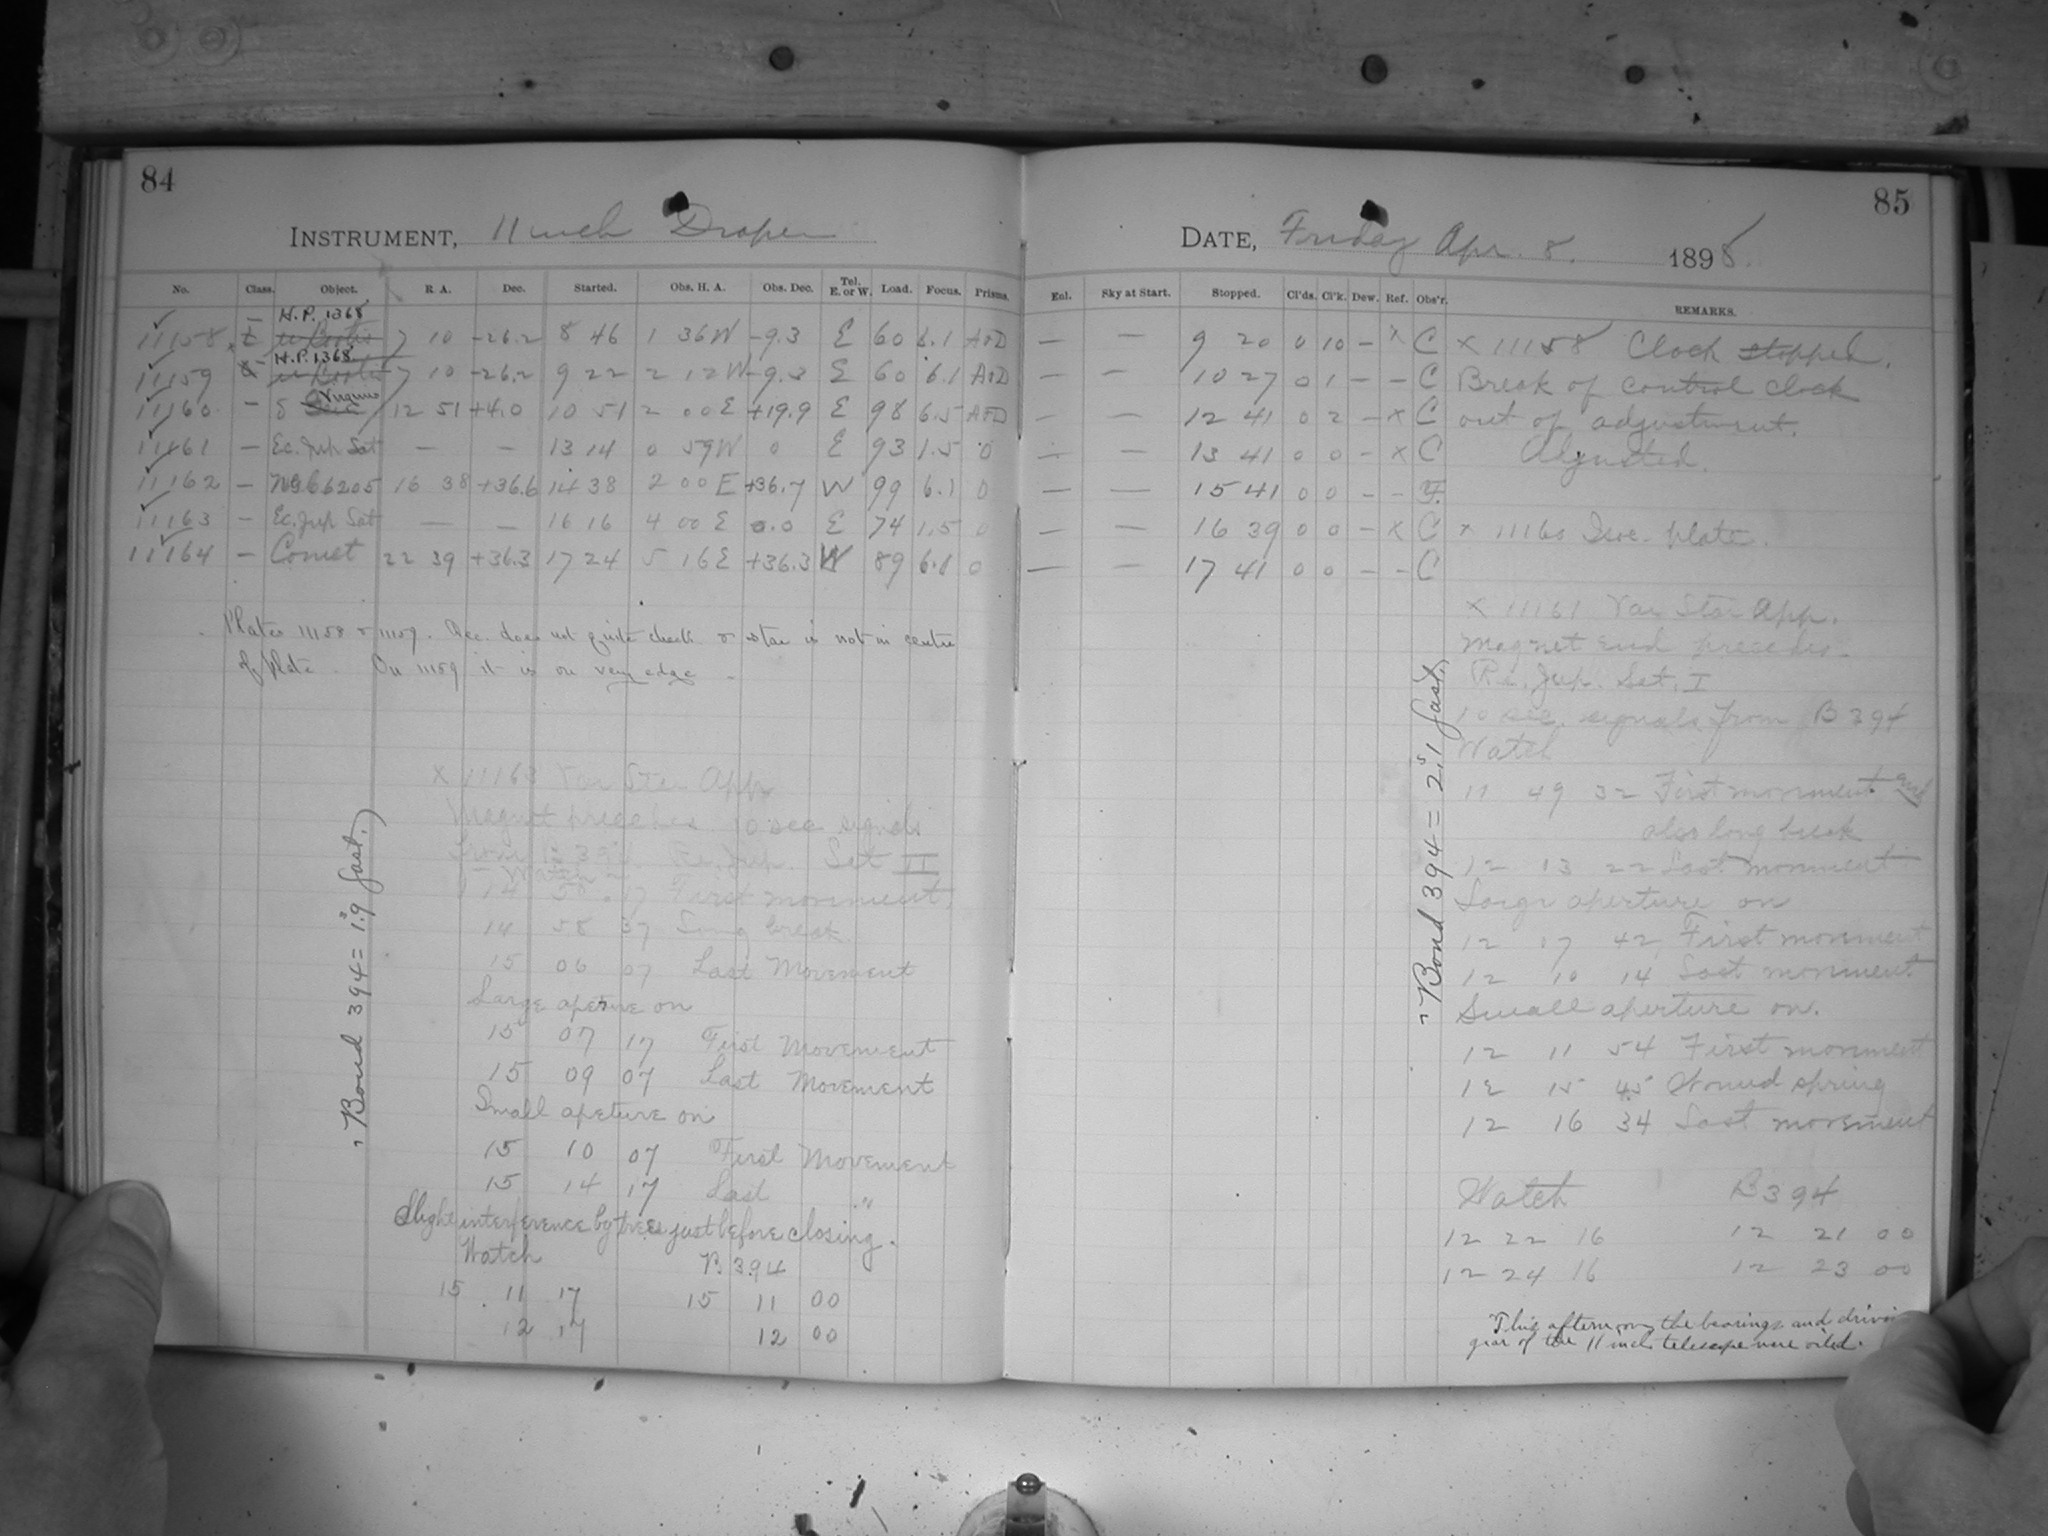 84
INSTRUMENT, 11 inch Draper
No. Class. Object. R A. Dec. Started. Obs. H. A. Obs. Dec. Tel. E. or W. Load. Focus. Prisms.
H.P. 1368
11158 7 10 -26.2 8 46 1 36 W -9.3 E 60 6.1 A+D
H.P. 1368
11159 7 10 -26.2 9 22 2 12 W -9.3 E 60 6.1 A+D
11160 – δ Virginis 12 51 +4.0 10 51 2 00 E +19.9 E 98 6.5 A+D
11161 – Ec. Jup Sat — — 13 14 0 59 W 0 E 93 1.5 0
11162 – NGC 6205 16 38 +36.6 14 38 2 00 E +36.7 W 99 6.1 0
11163 – Ec. Jup Sat — — 16 16 4 00 E 0.0 E 74 1.5 0
11164 – Comet 22 39 +36.3 17 24 5 16 E +36.3 W 89 6.1 0
Plates 11158 & 11159. Dec. does not quite check & star is not in centre
of plate. On 11159 it is on very edge.
x 11163 Var Star App
Magnet precedes 10 sec signals
from B 394 Ec. Jup. Sat II
Watch
14 50 17 First movement.
14 58 37 Long break.
15 06 07 Last Movement
Large apeture on
15 07 17 First Movement
15 09 07 Last Movement
Small apeture on
15 10 07 First Movement
15 14 17 Last "
Slight interference by trees just before closing.
Watch B 394
15 11 17 15 11 00
12 17 12 00
Bond 394 = 1s.9 fast.
85
DATE, Friday Apr. 8. 1898.
Enl. Sky at Start. Stopped. Cl'ds. Cl'k. Dew. Ref. Obs'r. REMARKS.
— — 9 20 0 10 – x C x 11158 Clock stopped.
— — 10 27 0 1 – – C Break of control clock
— — 12 41 0 2 – x C out of adjustment.
— — 13 41 0 0 – x C Adjusted.
— — 15 41 0 0 – – F.
— — 16 39 0 0 – x C x 11160 Isoc. plate.
— — 17 41 0 0 – – C
x 11161 Var Star App.
Magnet end precedes.
Re. Jup. Sat. I
10 sec. signals from B 394
Watch
11 49 32 First movement and
also long break
12 13 22 Last movement
Large aperture on
12 17 42 First movement
12 10 14 Last movement
Small aperture on.
12 11 54 First movement
12 15 45 Wound spring
12 16 34 Last movement
Watch B 394
12 22 16 12 21 00
12 24 16 12 23 00
This afternoon the bearings and
gear of the 11 inch telescope were oiled.
Bond 394 = 2s.1 fast.